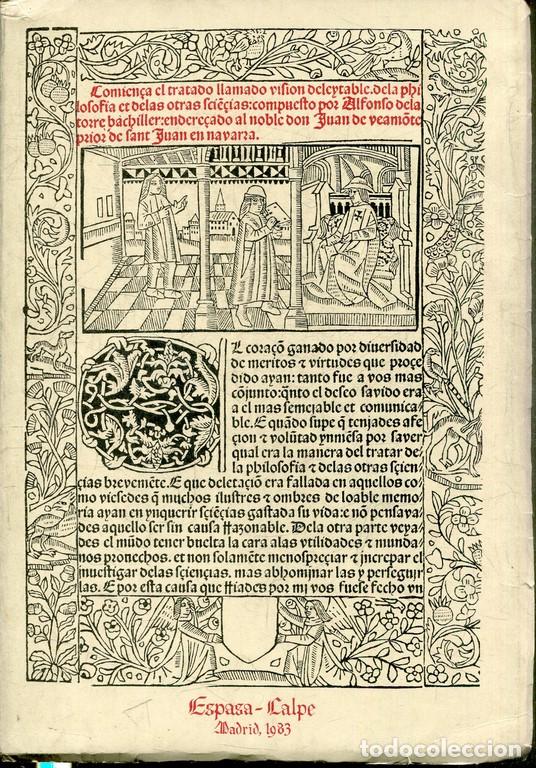 Comiença el tratado llamado vision deleytable.dela phi
losofia et delas otras sciẽçias:compuesto por Alfonso dela
torre bachiller:endereçado al noble don Juan de veamõte
prior de sant Juan en navarra.
EL coraçõ ganado por diuersidad
de meritos ⁊ virtudes que proçe
dido ayan: tanto fue a vos mas
cõjunto:q̃nto el desco savido era
a el mas semejable et comunica
ble.E quãdo supe q̃ tenjades afe
çion ⁊ volũtad ynmẽsa por saver
qual era la manera del tratar de
la philosofia ⁊ delas otras sçien
çias brevemẽte.E que deletaçiõ era fallada en aquellos co
mo viesedes q̃ muchos ilustres ⁊ ombres de loable memo
ria ayan en ynquerir sçiẽçias gastada su vida:e nõ pensava
des aquello ser sin causa Razonable. Dela otra parte veya
des el mũdo tener buelta la cara alas vtilidades ⁊ munda
nos prouechos. et non solamẽte menospreçiar ⁊ increpar el
inuestigar delas sçiençias. mas abhominar las y perseguir
las. E por esta causa que Riades por mi vos fuese fecho vn
Espasa-Calpe
Madrid, 1983
todocoleccion